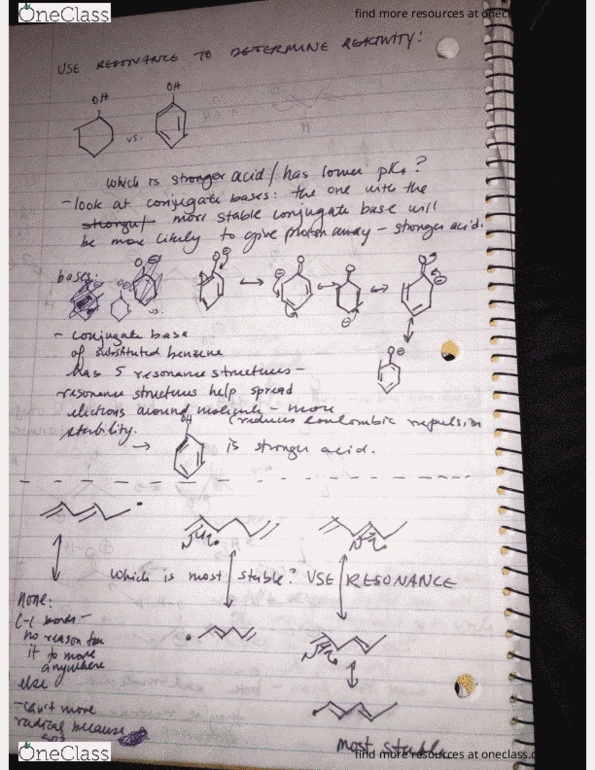 OneClass
find more resources at onecl
USE RESONANCE TO DETERMINE REACTIVITY!
OH
OH
vs.
which is stronger acid/has lower pKa?
- look at conjugate bases: the one with the
more stable conjugate base will
be more likely to give proton away - stronger acid.
bases:
vs.
- conjugate base
of substituted benzene
has 5 resonance structures -
resonance structures help spread
electrons around molecule - more
stability.
(reduces coulombic repulsion
→
OH
is stronger acid.
which is most stable? USE RESONANCE
none:
C-C bonds -
no reason for
it to move
anywhere
else
- can't move
radical because
most stable
OneClass
find more resources at oneclass.c